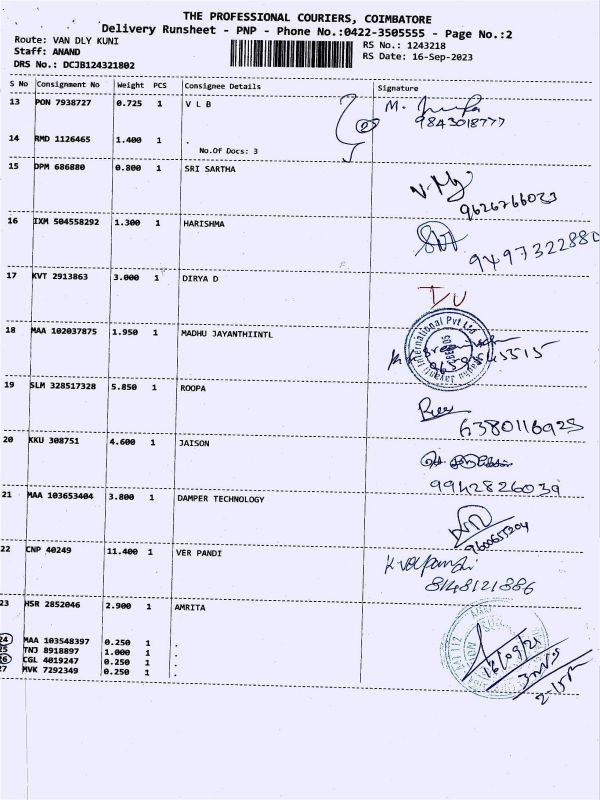 THE PROFESSIONAL COURIERS, COIMBATORE
Delivery Runsheet - PNP - Phone No.:0422-3505555 - Page No.:2
Route: VAN DLY KUNI
RS No.: 1243218
Staff: ANAND
RS Date: 16-Sep-2023
DRS No.: DCJB124321802
S No Consignment No Weight PCS Consignee Details Signature
13 PON 7938727 0.725 1 V L B M.
9843018777
14 RMD 1126465 1.400 1 .
No.Of Docs: 3
15 DPM 686880 0.800 1 SRI SARTHA
9626766023
16 IXM 504558292 1.300 1 HARISHMA
9497322880
17 KVT 2913863 3.000 1 DIRYA D
18 MAA 102037875 1.950 1 MADHU JAYANTHIINTL
International Pvt Ltd
19 SLM 328517328 5.850 1 ROOPA
6380116925
20 KKU 308751 4.600 1 JAISON
9942826039
21 MAA 103653404 3.800 1 DAMPER TECHNOLOGY
9600655204
22 CNP 40249 11.400 1 VER PANDI
8148121886
23 HSR 2852046 2.900 1 AMRITA
24 MAA 103548397 0.250 1 .
25 TNJ 8918897 1.000 1 .
26 CGL 4019247 0.250 1 .
27 MVK 7292349 0.250 1 .